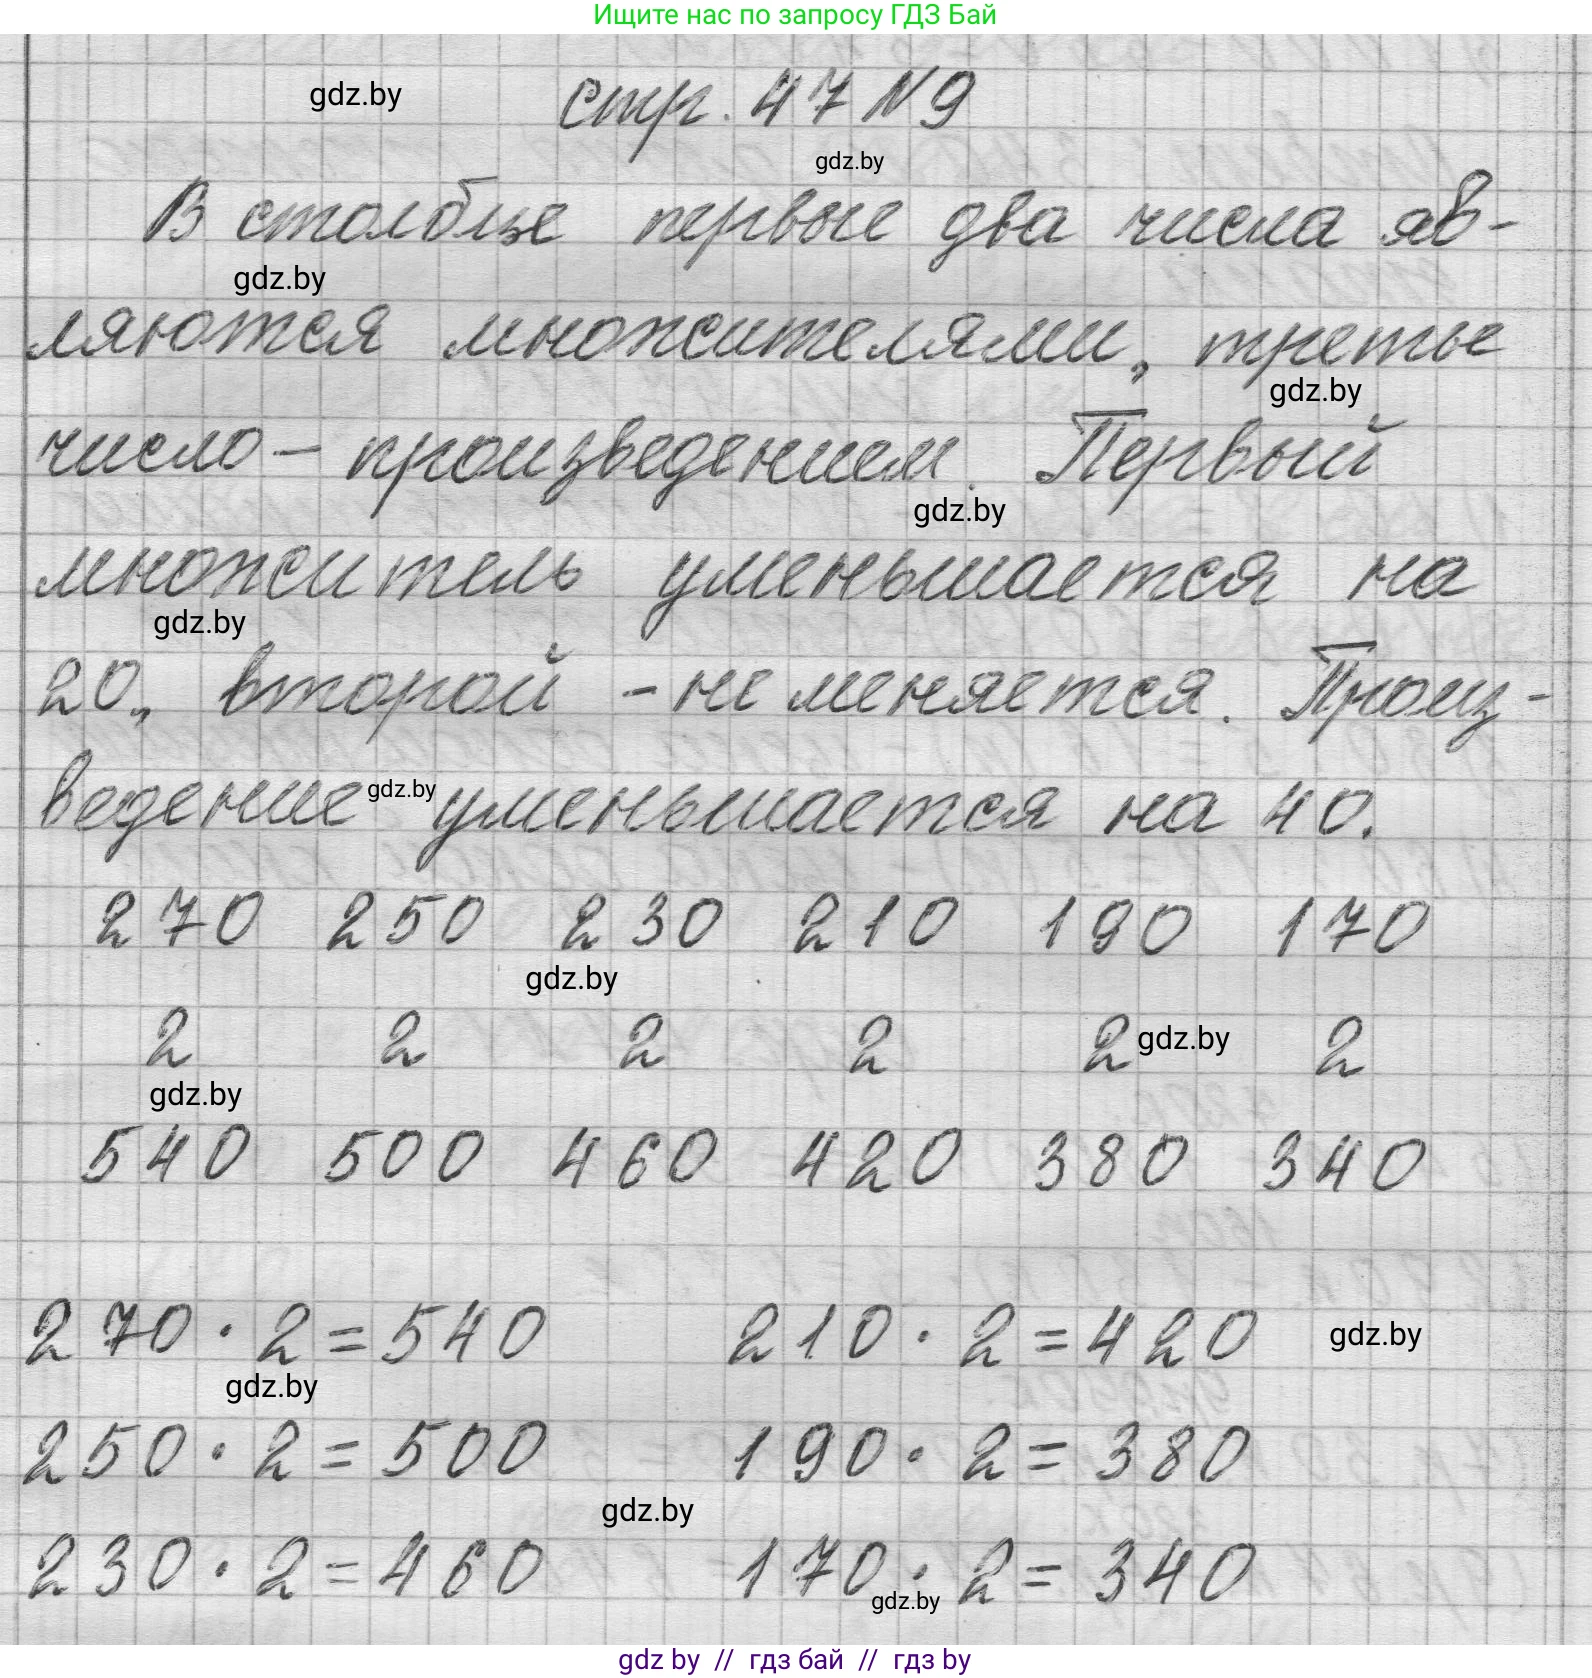 Ищите нас по запросу ГДЗ Бай
gdz.by
стр. 47 №9
gdz.by
В столбце первые два числа яв-
gdz.by
ляются множителями, третье
gdz.by
число – произведением. Первый
gdz.by
множитель уменьшается на
gdz.by
20, второй – не меняется. Произ-
ведение gdz.by уменьшается на 40.
270 250 230 210 190 170
gdz.by
2 2 2 2 2 gdz.by 2
gdz.by
540 500 460 420 380 340
270 · 2 = 540 210 · 2 = 420 gdz.by
gdz.by
250 · 2 = 500 190 · 2 = 380
gdz.by
230 · 2 = 460 170 · 2 = 340
gdz.by
gdz by // гдз бай // гдз by